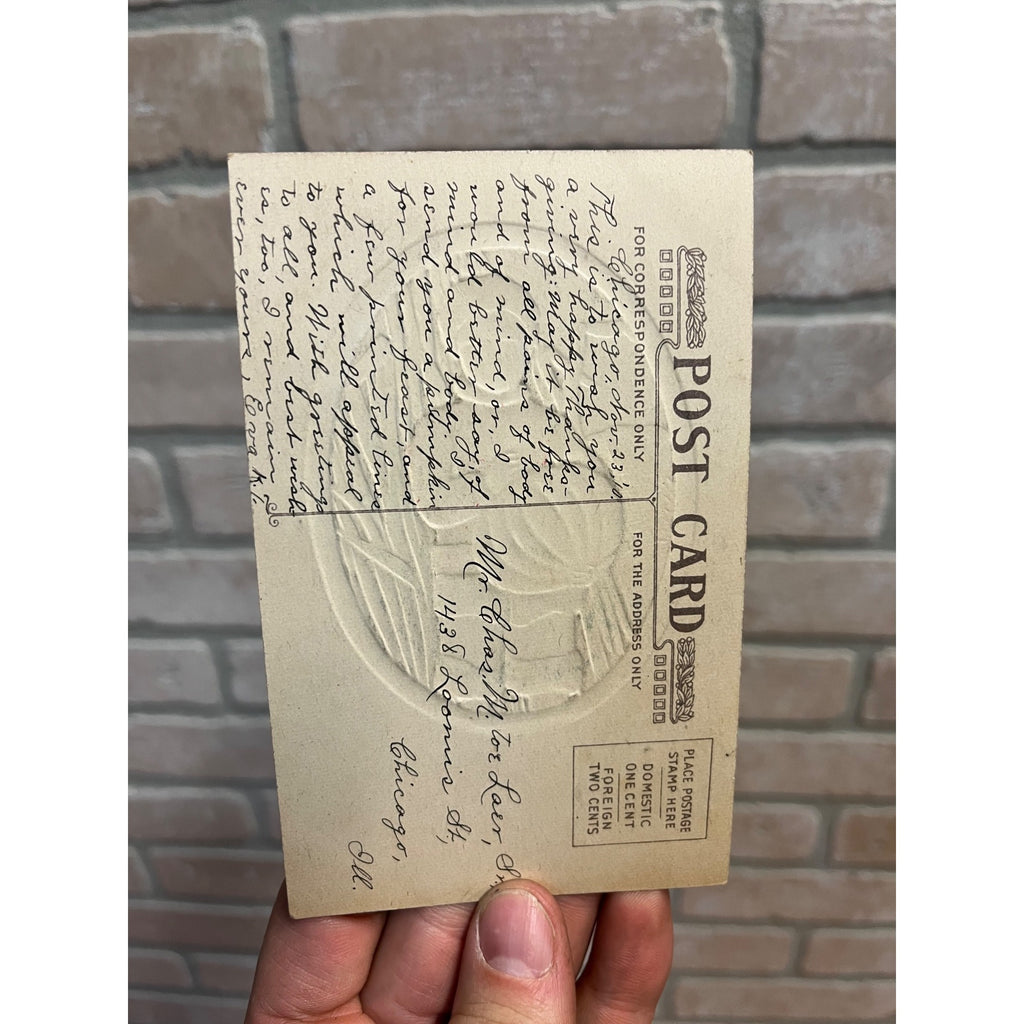 POST CARD
FOR CORRESPONDENCE ONLY
FOR THE ADDRESS ONLY
PLACE POSTAGE
STAMP HERE
DOMESTIC
ONE CENT
FOREIGN
TWO CENTS
Chicago, Nov. 23,
This is to wish you
a very happy Thanks-
giving: May it be free
from all pains of body
and of mind, or, I
would better say, of
mind and body. I
send you a pumpkin
for your feast, and
a few printed lines
which will appeal
to you. With greetings
to all, and best wish
es, too, I remain as
ever yours, Eva
Mr. Chas. M. tor Laer, Sr.
1438 Loomis St,
Chicago,
Ill.